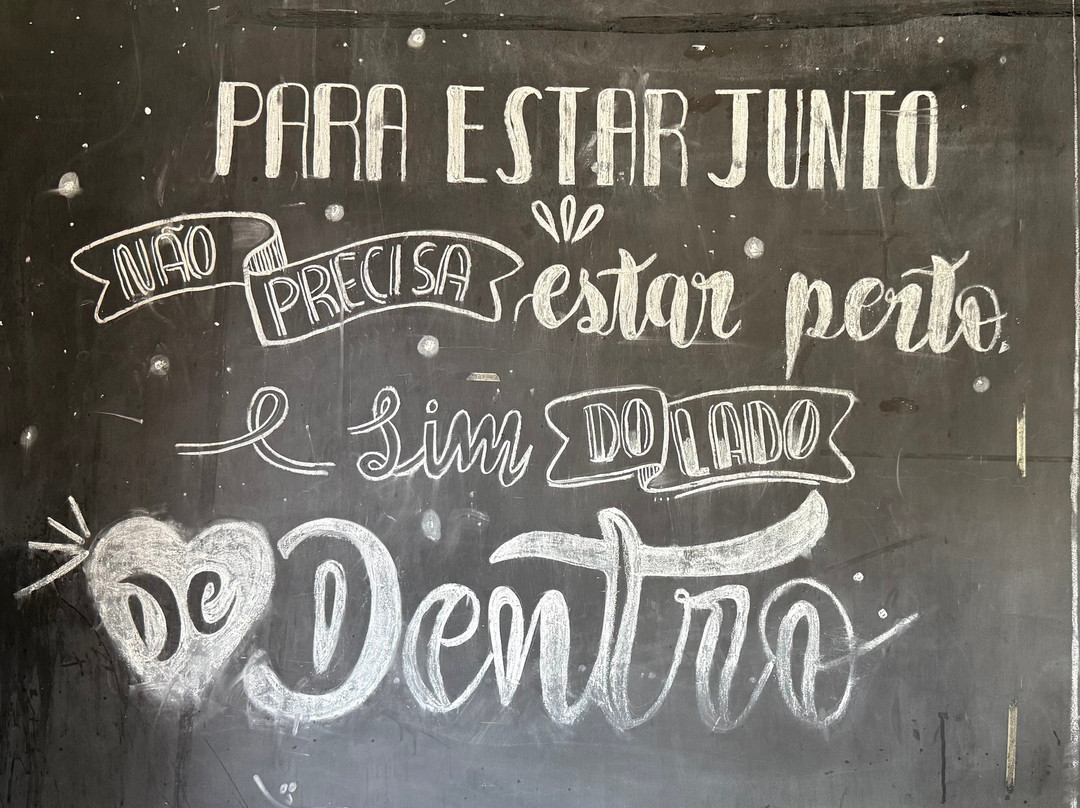 PARA ESTAR JUNTO
NÃO PRECISA estar perto,
e sim DO LADO
De Dentro